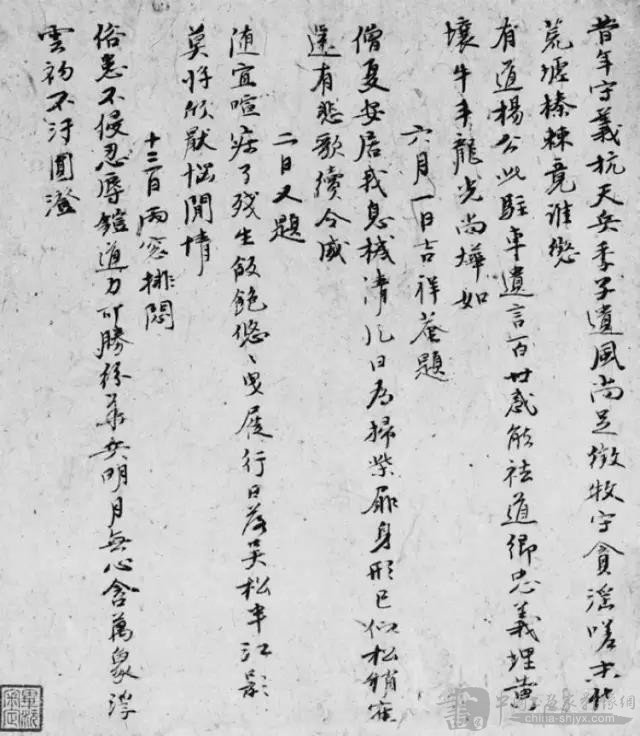 昔年守義抗天兵季子遺風尚足徵牧守貪淫嗟末代
荒墟榛棘竟誰懲
有道楊公此駐車遺言百世感能祛道鄉忠義埋黃
壤牛斗龍光尚燁如
六月一日吉祥菴題
僧夏安居我息機清日為掃柴扉身形已似松
還有悲歌續令威
二日又題
随宜喧寂了殘生飯飽悠〻曳履行日落吴松半江影
莫將欣厭惱閒情
十三日雨窓排悶
俗恚不侵忍辱鎧道力可勝紛華兵明月無心含萬象浮
雲不汙圓澄
china-shjyx.com